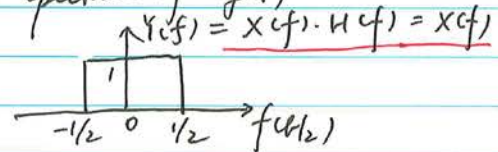 Y(f) = X(f) · H(f) = X(f)
1
-1/2 0 1/2 f(Hz)